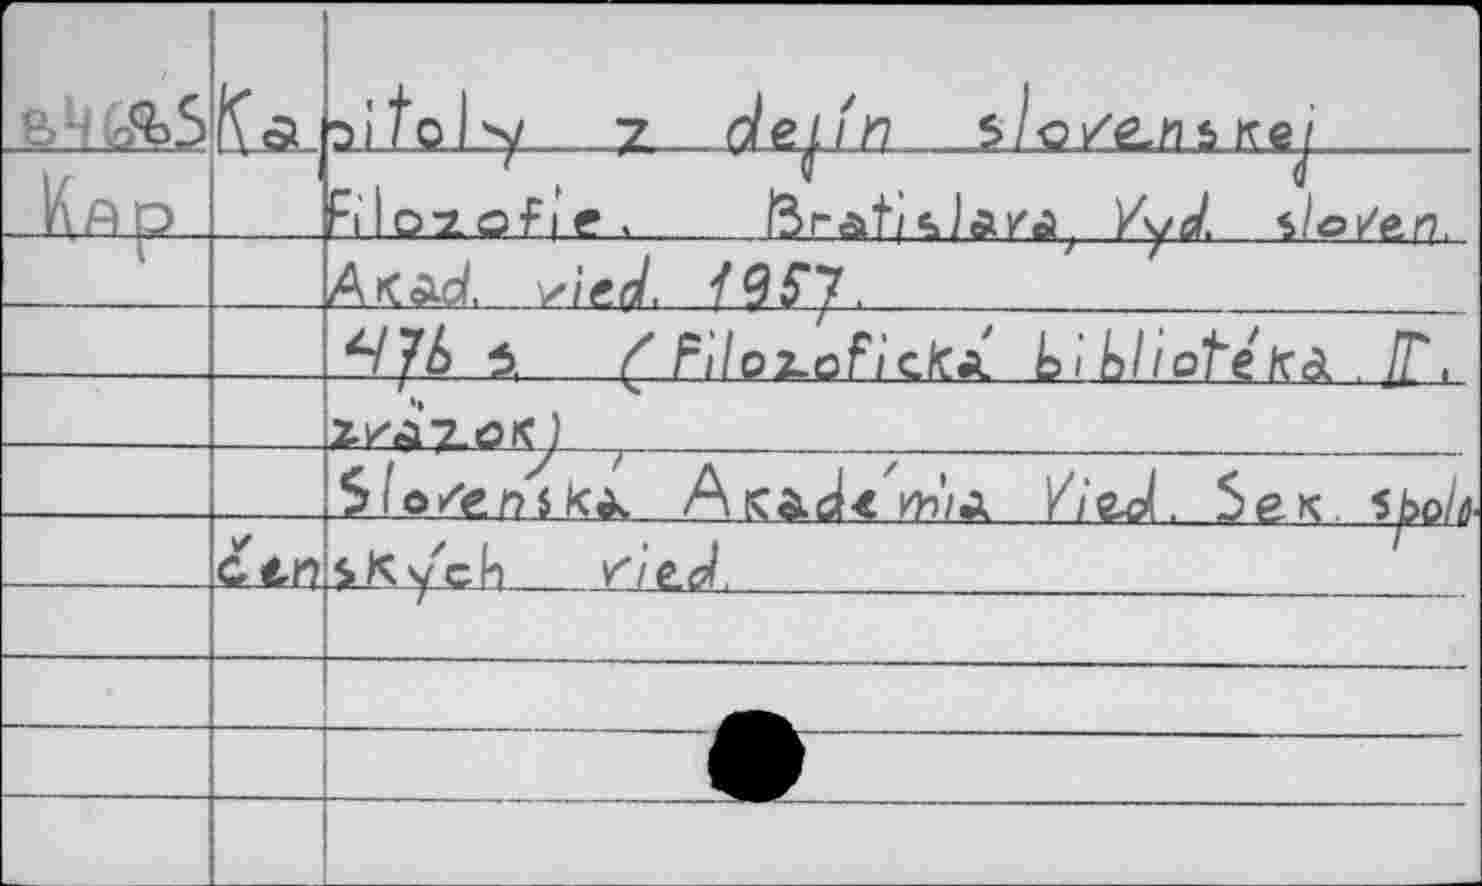 Kapitoly z dejín slovenskej
Kap Filozofie. Bratislava, Vyd. sloven.
Akad. vied. 1957.
476 s. (Filozofická bibliotéka. II.
zväzok)
Slovenská Akadémia Vied. Sek. spolo-
čenských vied.